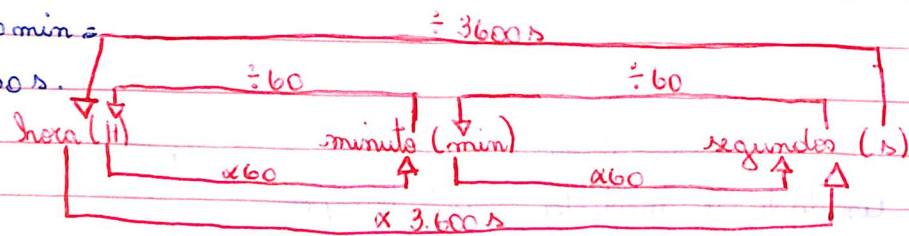 o min =
÷ 3600 s
60 s.
÷ 60 ÷ 60
hora (h) minuto (min) segundos (s)
x60 x60
x 3.600 s